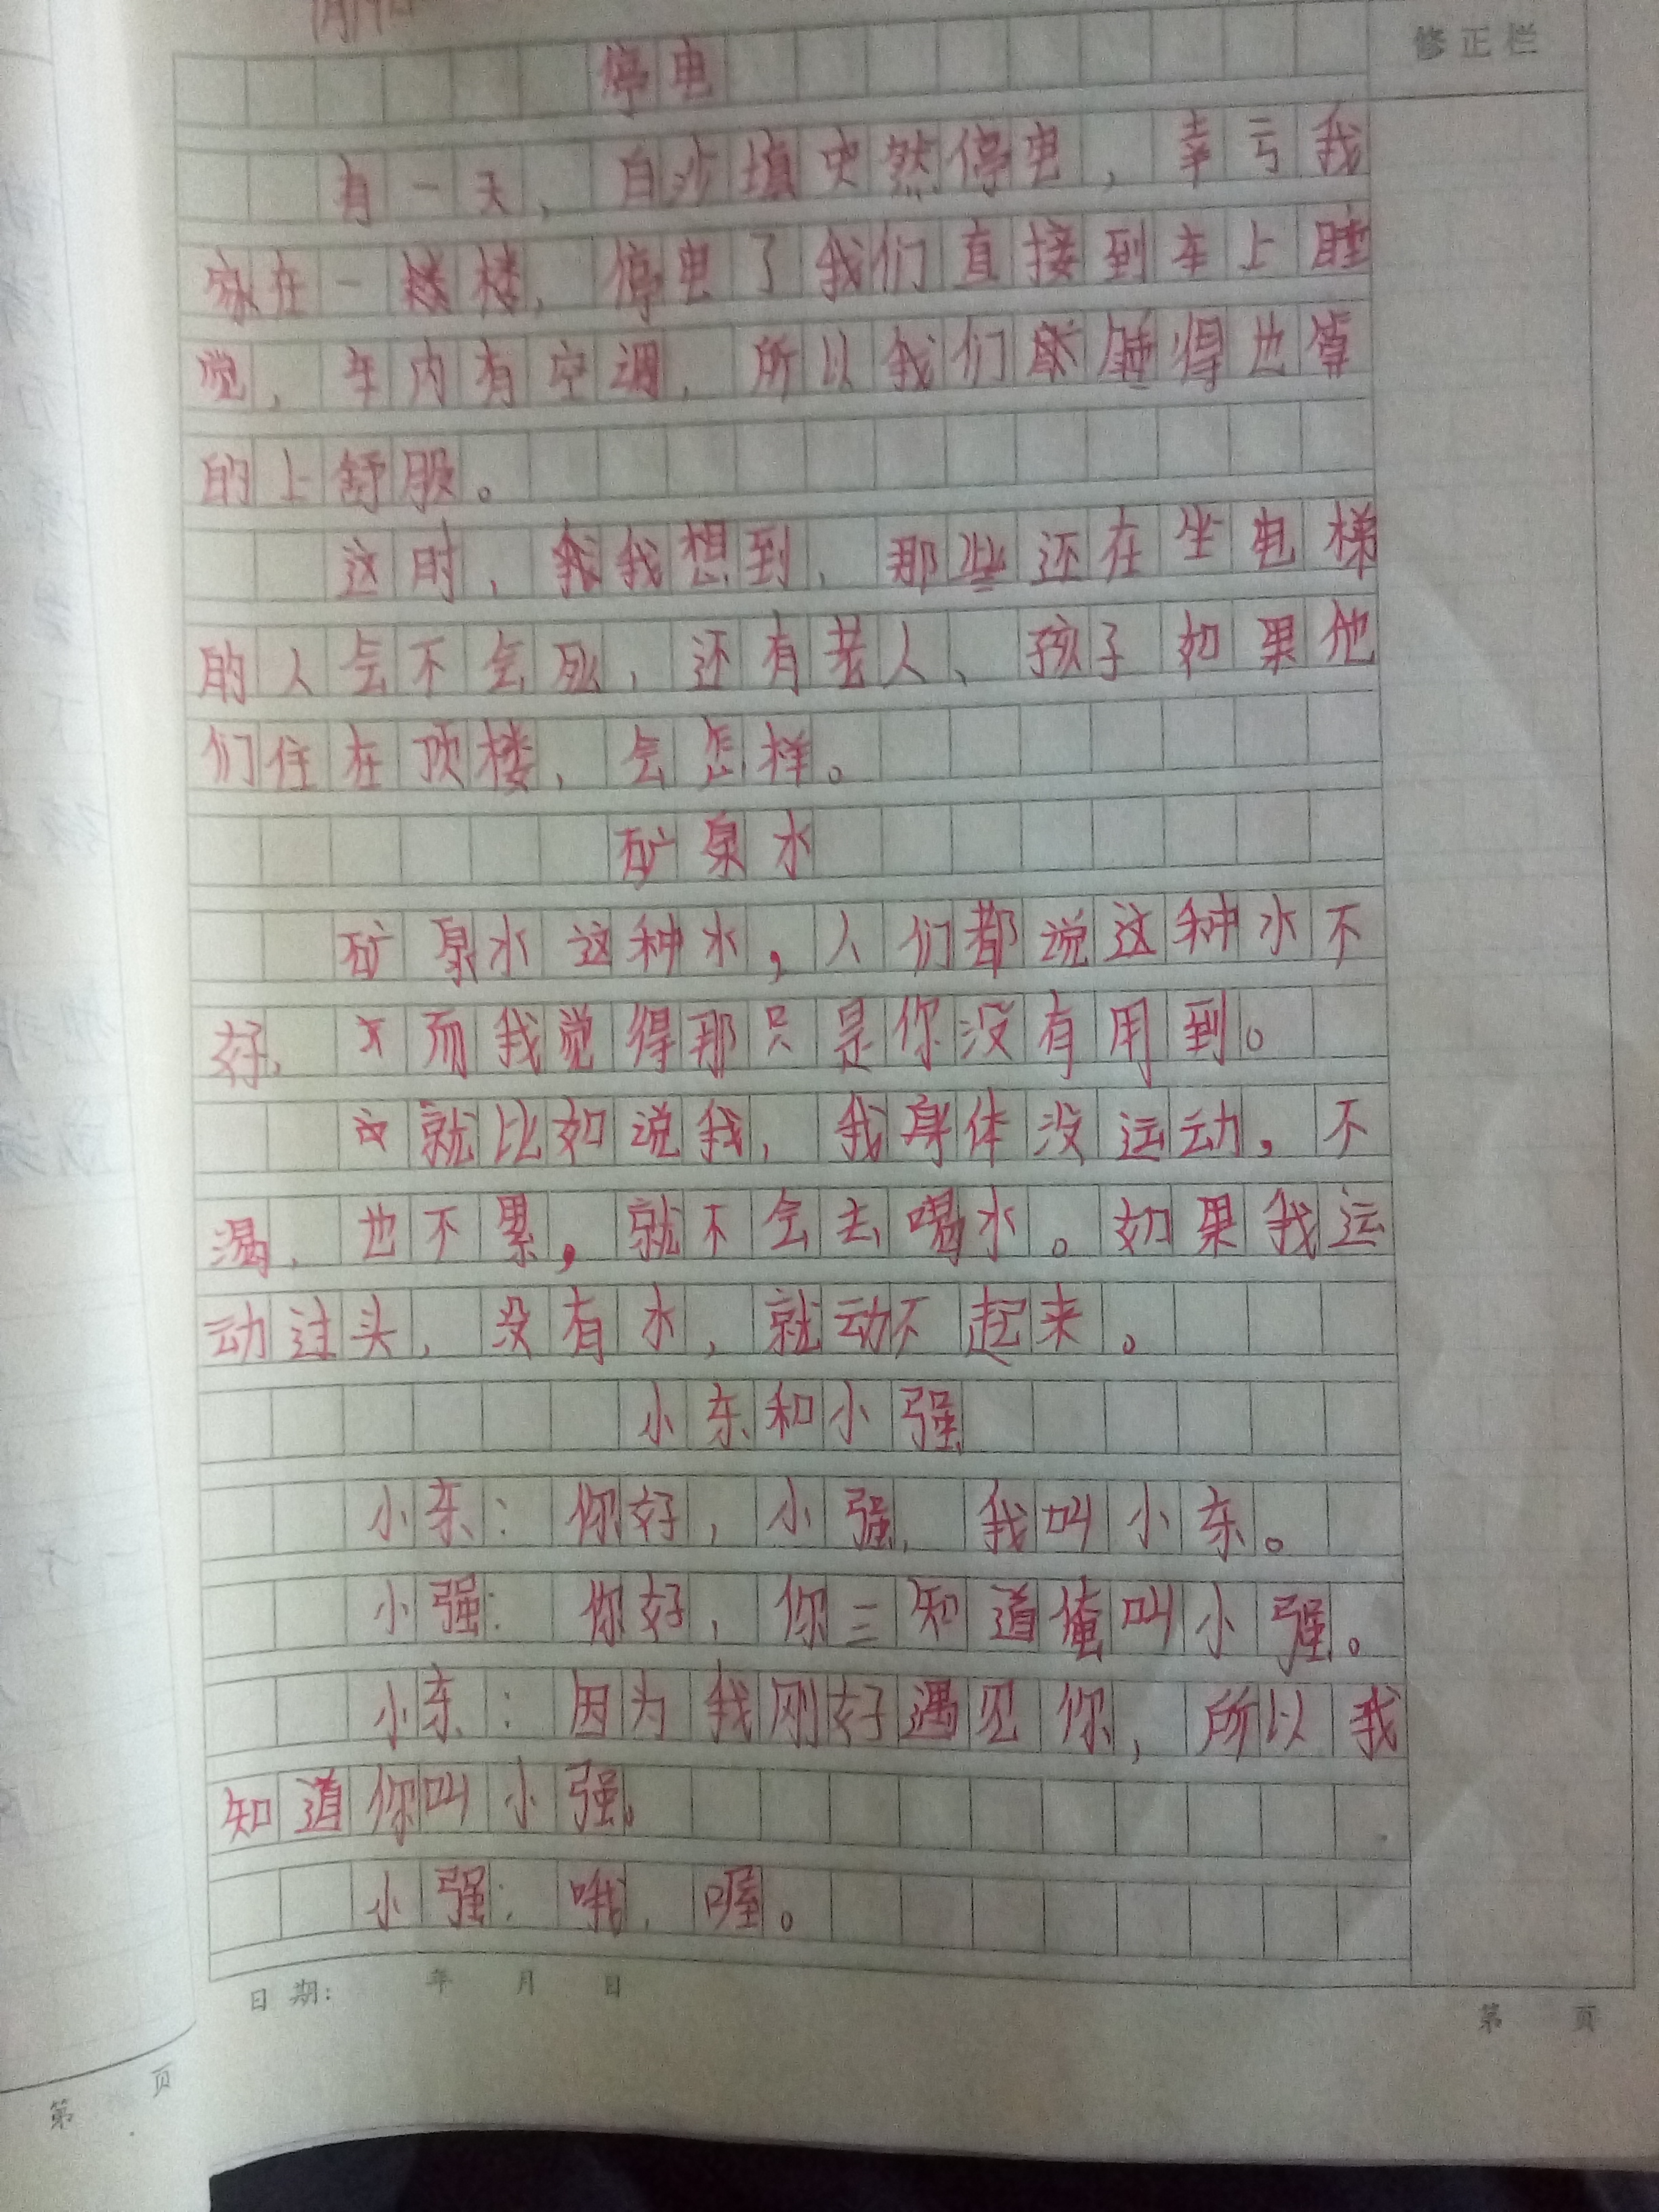 停电
修正栏
有一天，白沙填突然停电，幸亏我
家在一楼，停电了我们直接到车上睡
觉，车内有空调，所以我们睡得也算
的上舒服。
这时，我想到，那些还在坐电梯
的人会不会死，还有老人、孩子如果他
们住在顶楼，会怎样。
矿泉水
矿泉水这种水，人们都说这种水不
好，而我觉得那只是你没有用到。
就比如说我，我身体没运动，不
渴，也不累，就不会去喝水。如果我运
动过头，没有水，就动不起来。
小东和小强
小东：你好，小强，我叫小东。
小强：你好，你三知道俺叫小强。
小东：因为我刚好遇见你，所以我
知道你叫小强。
小强：哦，喔。
日期： 年 月 日
第 页
第 页